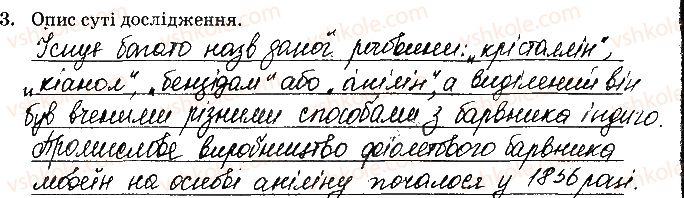 3. Опис суті дослідження.
Існує багато назв даної речовини: „крісталлін",
„кіанол", „бензідам" або „анілін", а виділений він
був вченими різними способами з барвника індиго.
Промислове виробництво фіолетового барвника
мовеїн на основі аніліну почалося у 1856 році.